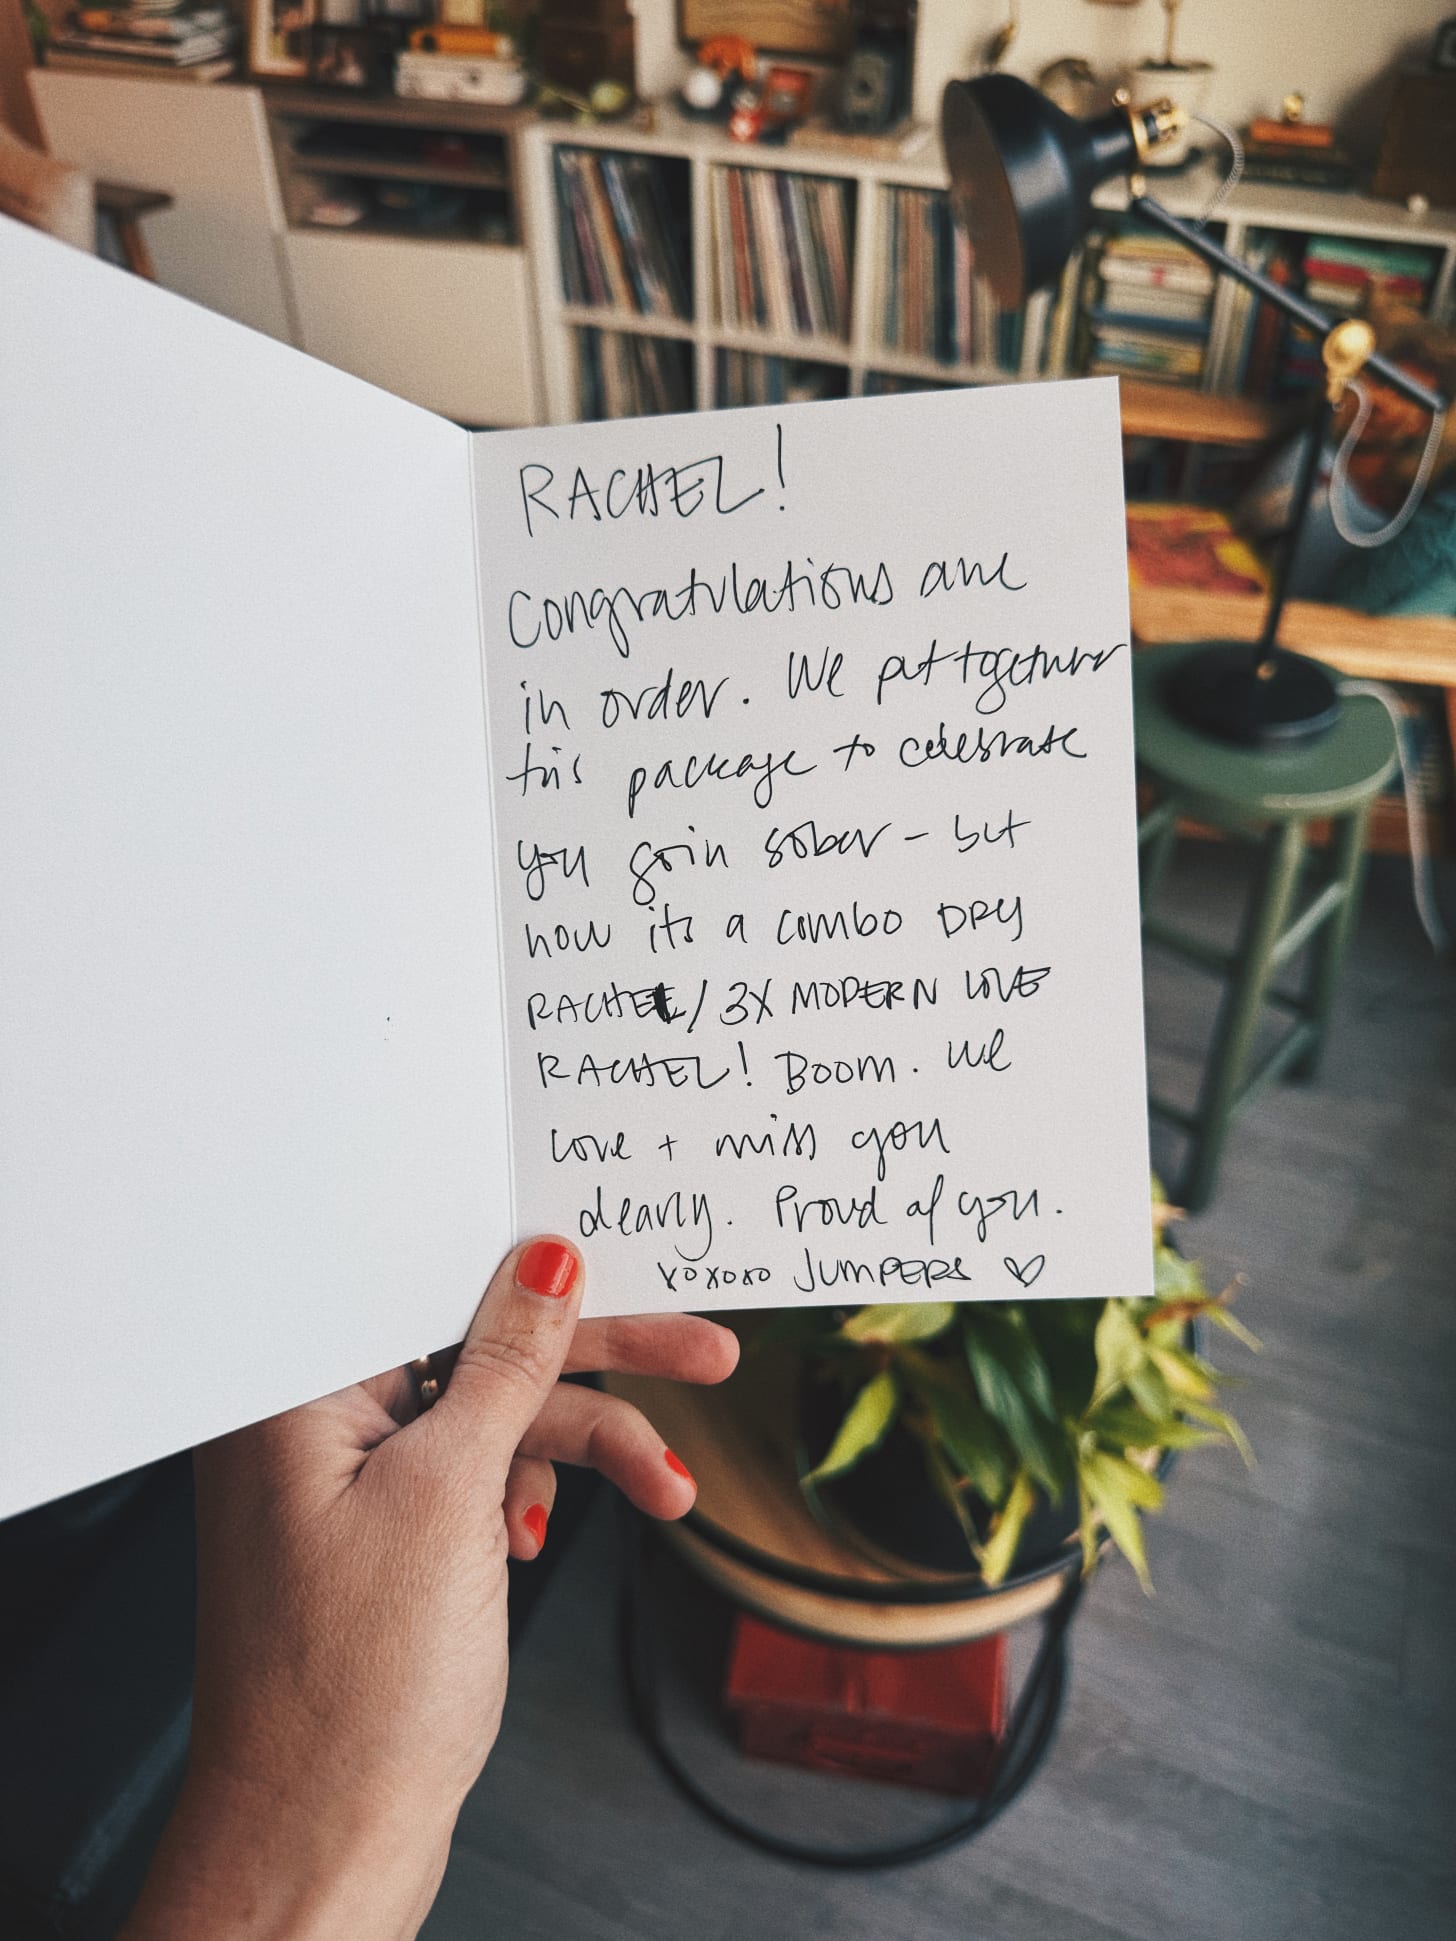 RACHEL!
Congratulations are
in order. We put together
this package to celebrate
you goin sober - but
now its a combo DRY
RACHEL / 3X MODERN LOVE
RACHEL! BOOM. We
love + miss you
dearly. Proud of you.
xoxoxo JUMPERS ♡